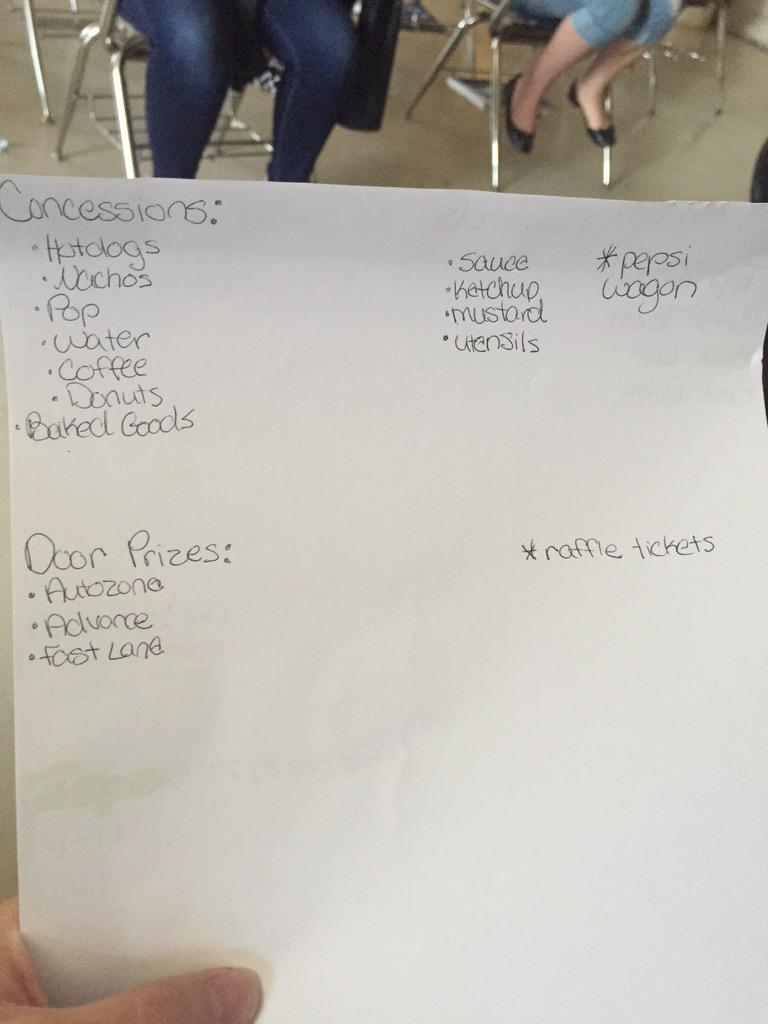 Concessions:
• Hotdogs
• Nachos
• Pop
• Water
• Coffee
• Donuts
• Baked Goods
• Sauce
• Ketchup
• mustard
• utensils
*pepsi
wagon
Door Prizes:
• Autozone
• Advance
• Fast Lane
*raffle tickets